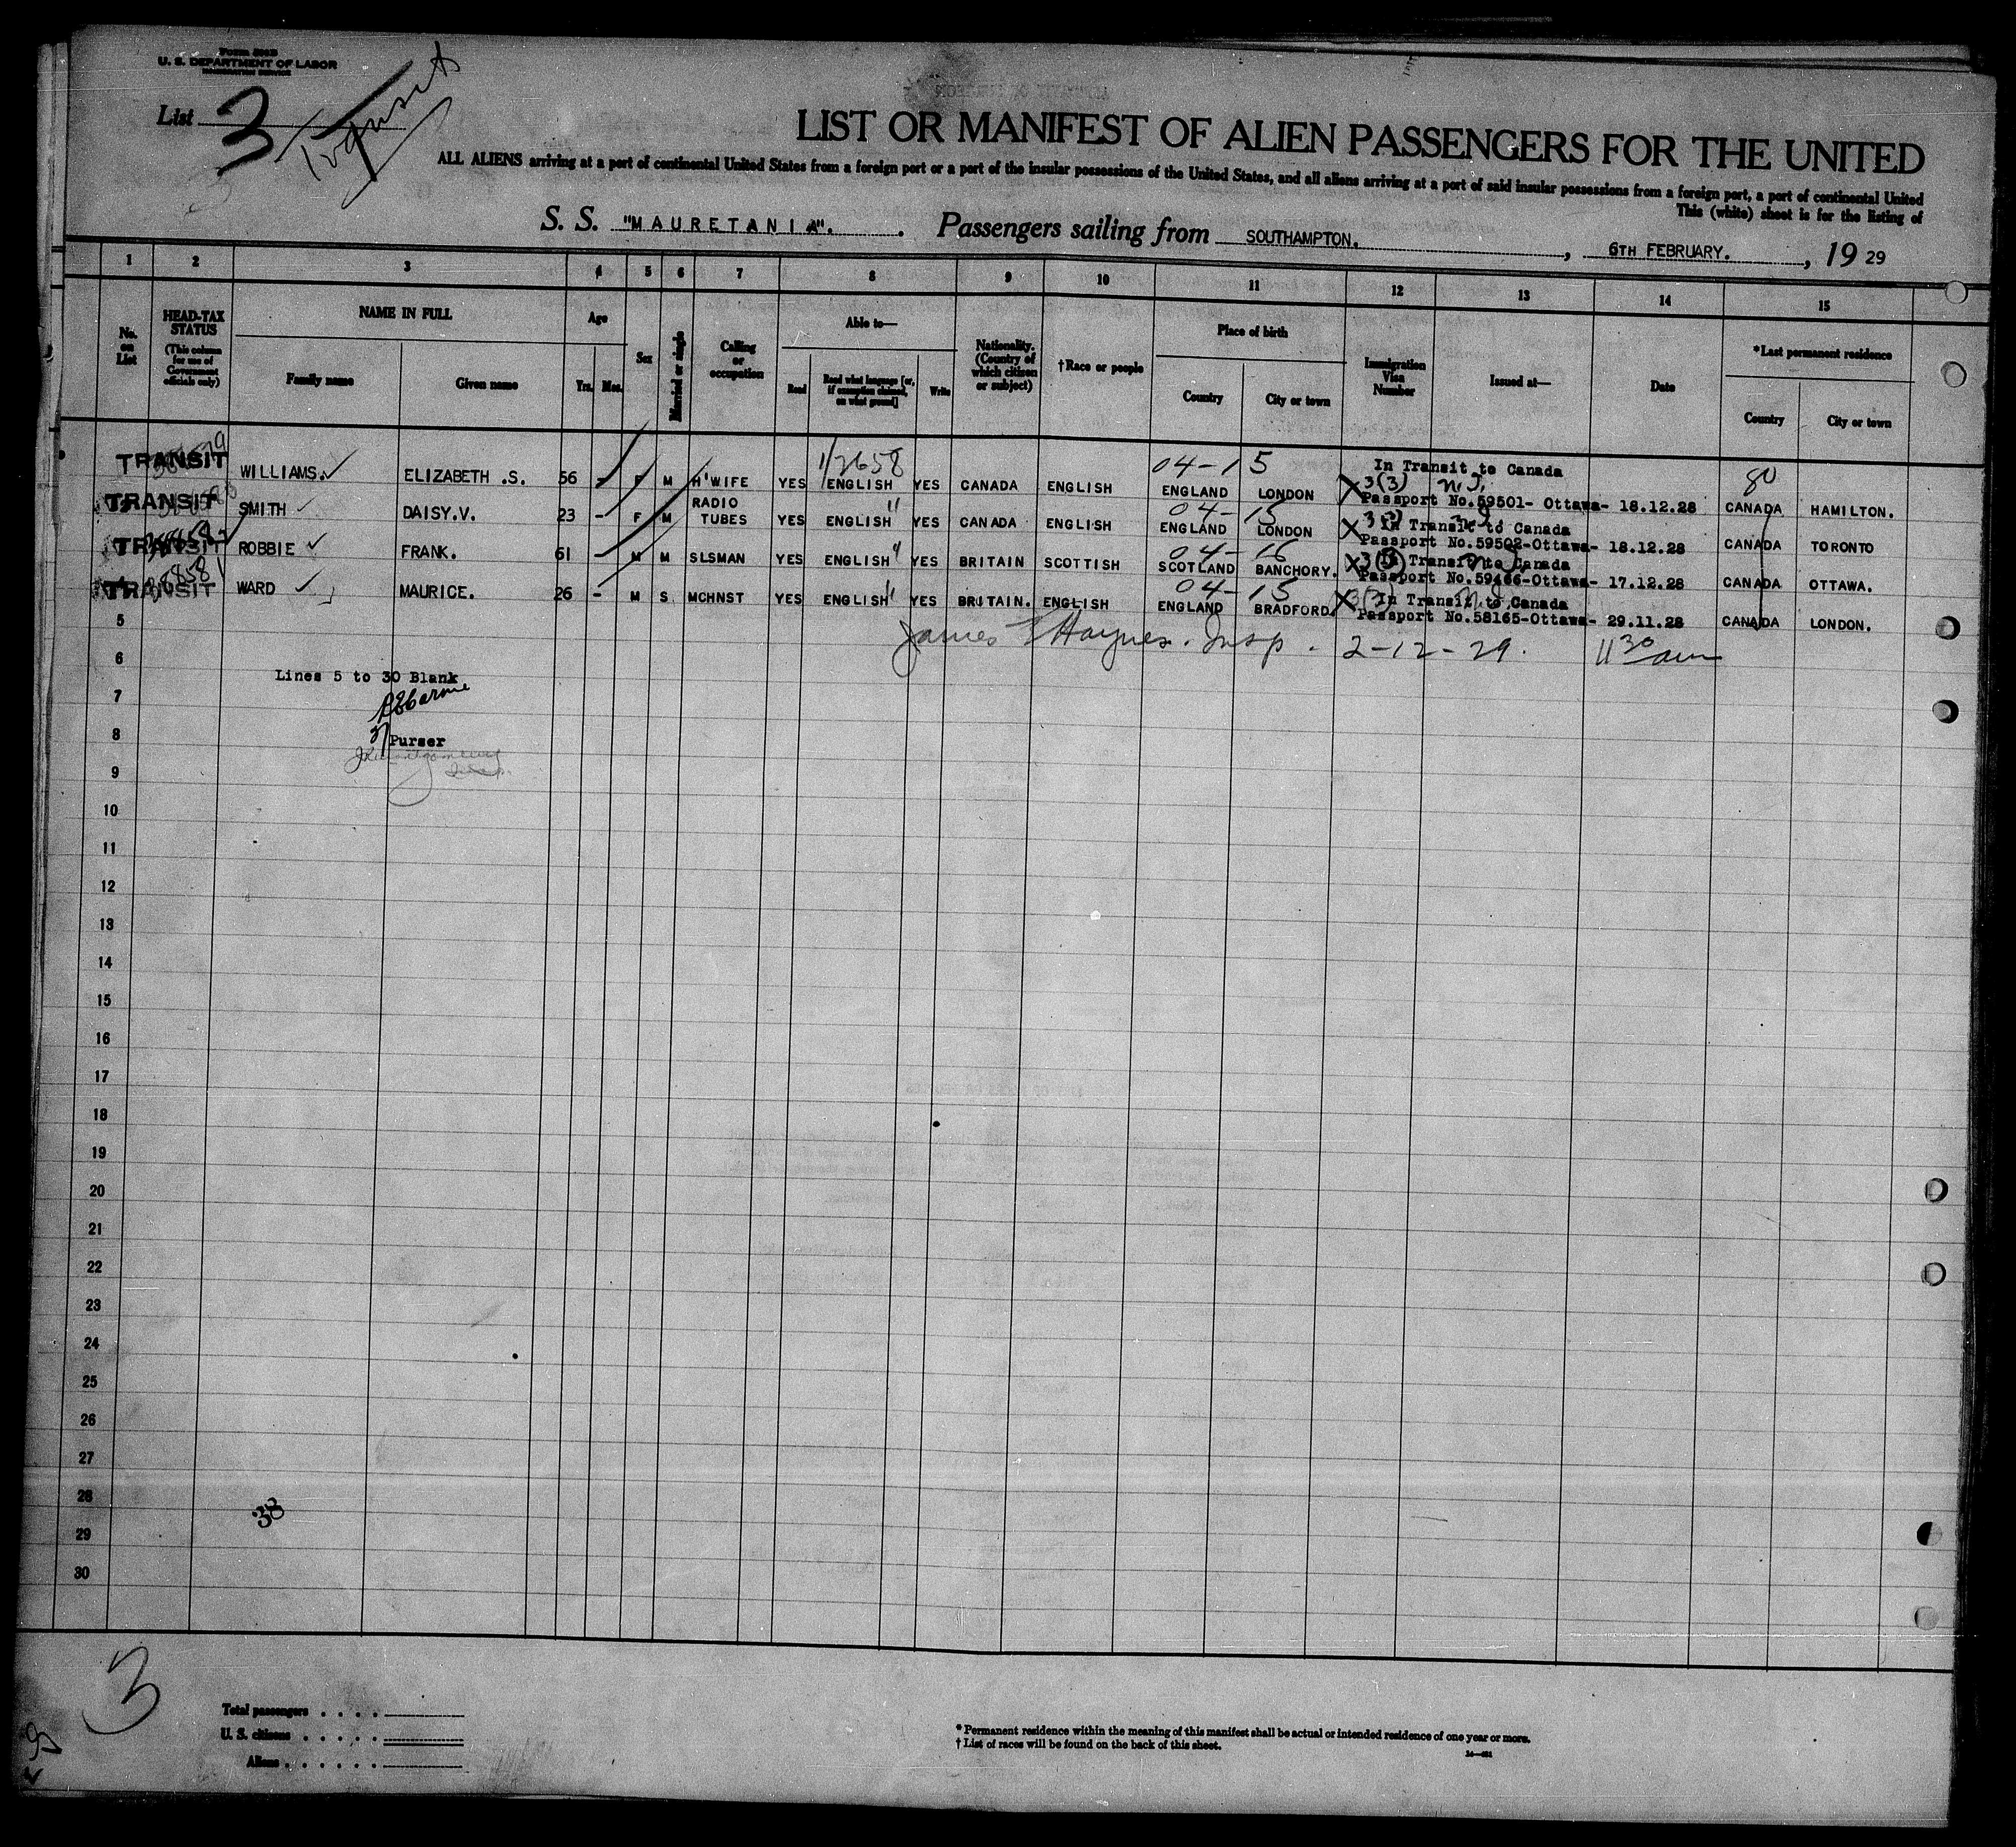 U. S. DEPARTMENT OF LABOR
IMMIGRATION SERVICE
List 3 Transit
LIST OR MANIFEST OF ALIEN PASSENGERS FOR THE UNITED
ALL ALIENS arriving at a port of continental United States from a foreign port or a port of the insular possessions of the United States, and all aliens arriving at a port of said insular possessions from a foreign port, a port of continental United
This (white) sheet is for the listing of
S. S. "MAURETANIA". Passengers sailing from SOUTHAMPTON. , 6TH FEBRUARY. , 19 29
1 2 3 4 5 6 7 8 9 10 11 12 13 14 15
No. on List
HEAD-TAX STATUS (This column for use of Government officials only)
NAME IN FULL
Family name Given name
Age
Yrs. Mos.
Sex
Married or single
Calling or occupation
Able to—
Read Read what language [or, if exemption claimed, on what ground] Write
Nationality. (Country of which citizen or subject)
†Race or people
Place of birth
Country City or town
Immigration Visa Number
Issued at—
Date
*Last permanent residence
Country City or town
1/2658 04-15 In Transit to Canada 80
TRANSIT WILLIAMS. ELIZABETH .S. 56 - F M H'WIFE YES ENGLISH YES CANADA ENGLISH ENGLAND LONDON X3(3) N.J. Passport No.59501- Ottawa- 18.12.28 CANADA HAMILTON.
04-15 In Transit to Canada
TRANSIT SMITH DAISY.V. 23 - F M RADIO TUBES YES ENGLISH " YES CANADA ENGLISH ENGLAND LONDON X Passport No.59502-Ottawa- 18.12.28 CANADA TORONTO
04-16 In Transit to Canada
TRANSIT ROBBIE FRANK. 61 - M M SLSMAN YES ENGLISH " YES BRITAIN SCOTTISH SCOTLAND BANCHORY. X Passport No.59466-Ottawa- 17.12.28 CANADA OTTAWA.
04-15 In Transit to Canada
TRANSIT WARD MAURICE. 26 - M S MCHNST YES ENGLISH " YES BRITAIN. ENGLISH ENGLAND BRADFORD. X Passport No.58165-Ottawa- 29.11.28 CANADA LONDON.
5
James Haynes. Insp. 2-12-29. 11 30 am
6
Lines 5 to 30 Blank
7
8
Purser
9
10
11
12
13
14
15
16
17
18
19
20
21
22
23
24
25
26
27
28
38
29
30
3
Total passengers
U. S. citizens
Aliens
* Permanent residence within the meaning of this manifest shall be actual or intended residence of one year or more.
† List of races will be found on the back of this sheet.